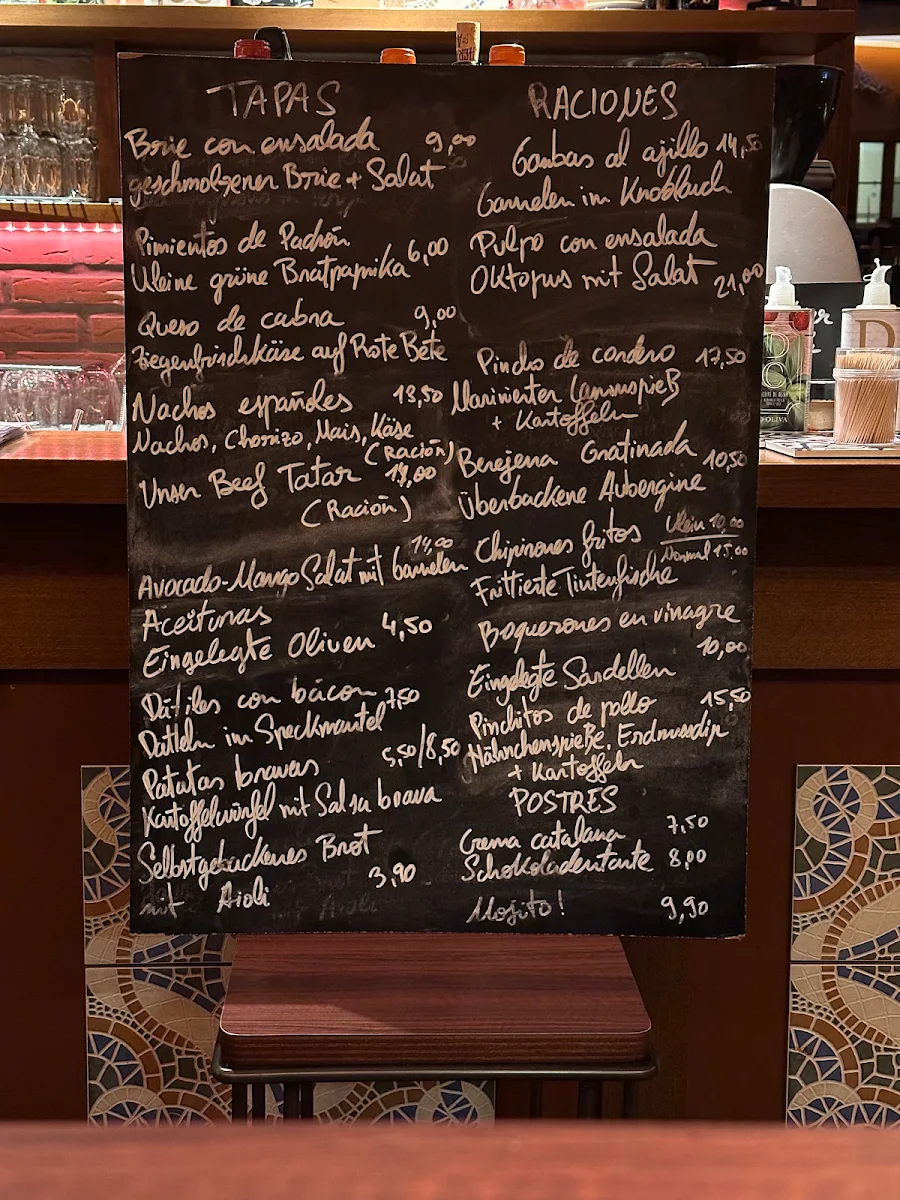 TAPAS
Brie con ensalada 9,00
geschmolzener Brie + Salat
Pimientos de Padrón
kleine grüne Bratpaprika 6,00
Queso de cabra 9,00
Ziegenfrischkäse auf Rote Bete
Nachos españoles 13,50
Nachos, Chorizo, Mais, Käse
(Ración)
Unser Beef Tatar
(Ración)
Avocado-Mango Salat mit Garnelen 14,00
Aceitunas
Eingelegte Oliven 4,50
Dátiles con bacon 7,50
Datteln im Speckmantel
Patatas bravas 5,50/8,50
Kartoffelwürfel mit Salsa brava
Selbstgebackenes Brot
mit Aioli 3,90
RACIONES
Gambas al ajillo 14,50
Garnelen im Knoblauch
Pulpo con ensalada
Oktopus mit Salat 21,00
Pincho de cordero 17,50
Marinierter Lammspieß
+ Kartoffeln
Berejena Gratinada 10,50
Überbackene Aubergine
Chipirones fritos klein 10,00
Normal 15,00
Frittierte Tintenfische
Boquerones en vinagre
10,00
Eingelegte Sardellen
Pinchitos de pollo 15,50
Hähnchenspieße, Erdnussdip
+ Kartoffeln
POSTRES
Crema catalana 7,50
Schokoladentarte 8,00
Mojito! 9,90
D'OLIVA